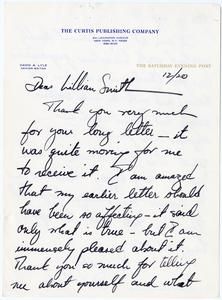 THE CURTIS PUBLISHING COMPANY
NEW YORK, N.Y. 10022
DAVID A. LYLE
SENIOR EDITOR
THE SATURDAY EVENING POST
12/20
Dear William Smith
Thank you very much
for your long letter – it
was quite moving for me
to receive it. I am amazed
that my earlier letter should
have been so affecting – it said
only what is true – but I am
immensely pleased about it.
Thank you so much for telling
me about yourself and what